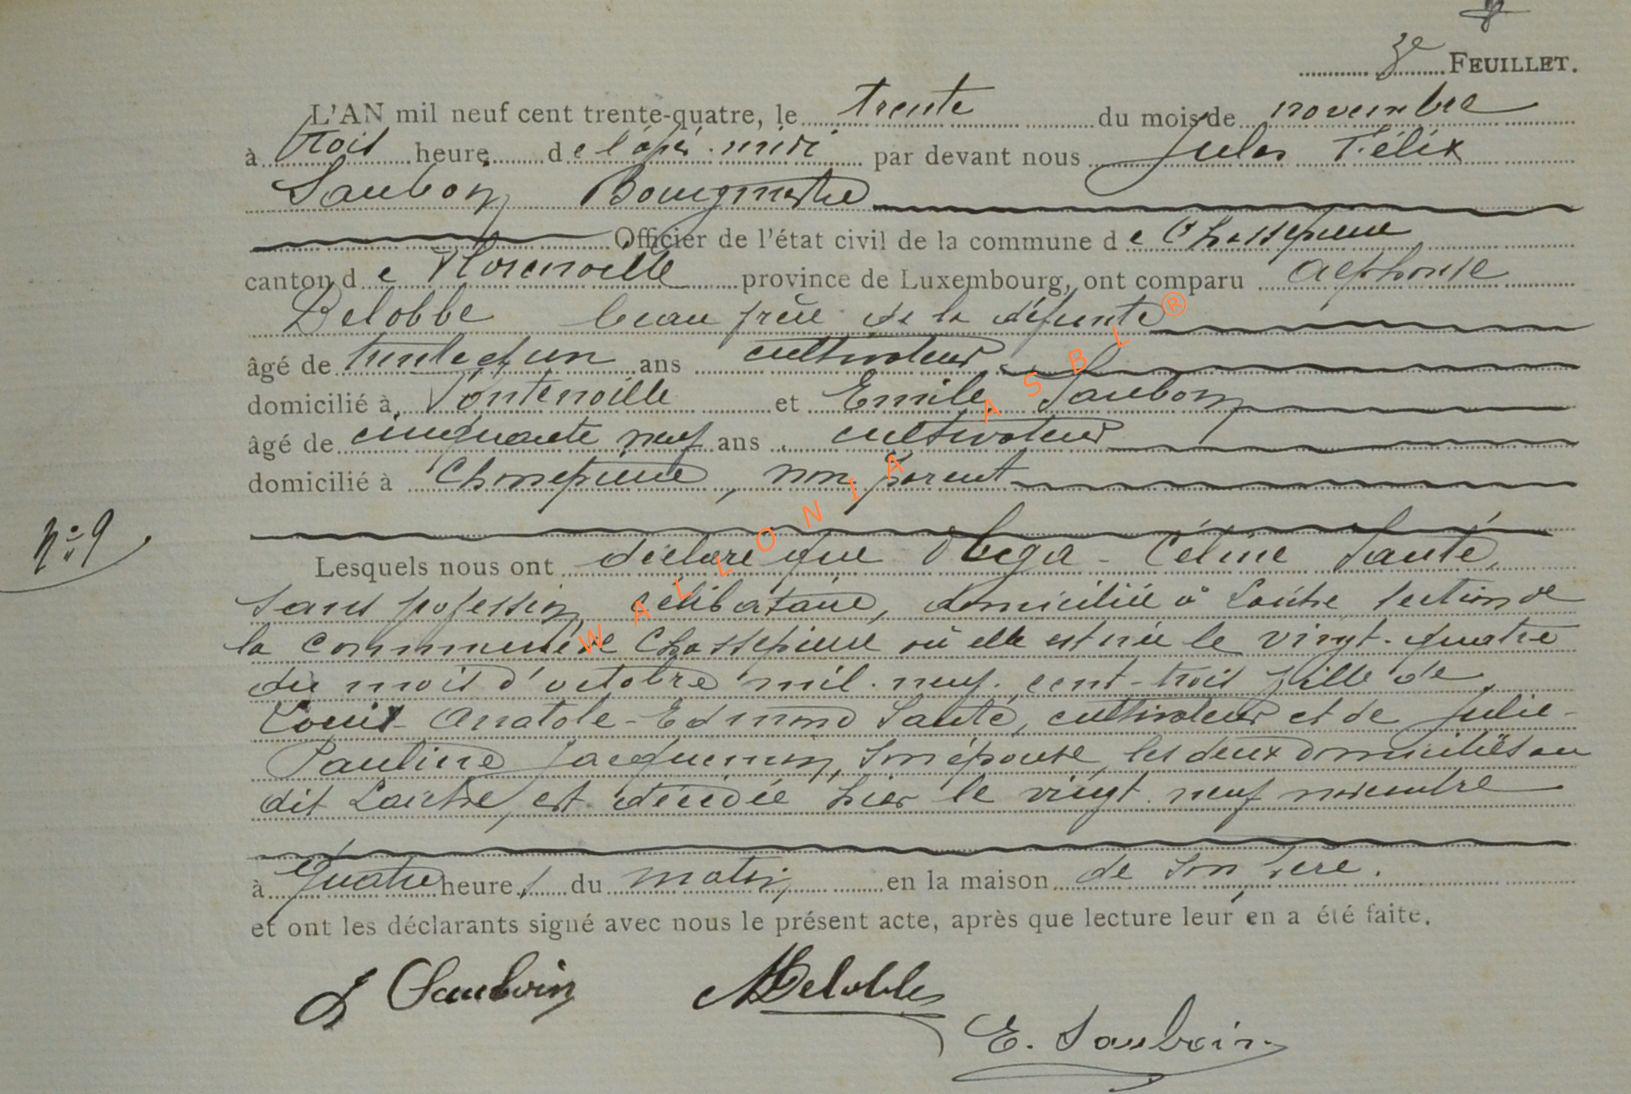 3e FEUILLET.
L'AN mil neuf cent trente-quatre, le trente du mois de novembre
à trois heure de l'après-midi par devant nous Jules Félix
Sauboin Bourgmestre
Officier de l'état civil de la commune de Chassepierre
canton de Florenville province de Luxembourg, ont comparu Alphonse
Delobbe beau frère de la défunte
âgé de trente et un ans cultivateur
domicilié à Fontenoille et Emile Sauboin
âgé de cinquante neuf ans cultivateur
domicilié à Chassepierre, non parent
n° 9
Lesquels nous ont déclaré que Olga - Céline Santé,
sans profession, célibataire, domiciliée à Laiche section de
la commune de Chassepierre où elle est née le vingt-quatre
du mois d'octobre mil-neuf-cent-trois fille de
Louis Anatole-Edmond Santé, cultivateur et de Julie-
Pauline Jacquemin, son épouse, les deux domiciliés au
dit Laiche, est décédée hier le vingt neuf novembre
à quatre heures du matin en la maison de son père.
et ont les déclarants signé avec nous le présent acte, après que lecture leur en a été faite.
J Sauboin ADelobbe
E. Sauboin
WALLONIA ASBL ®